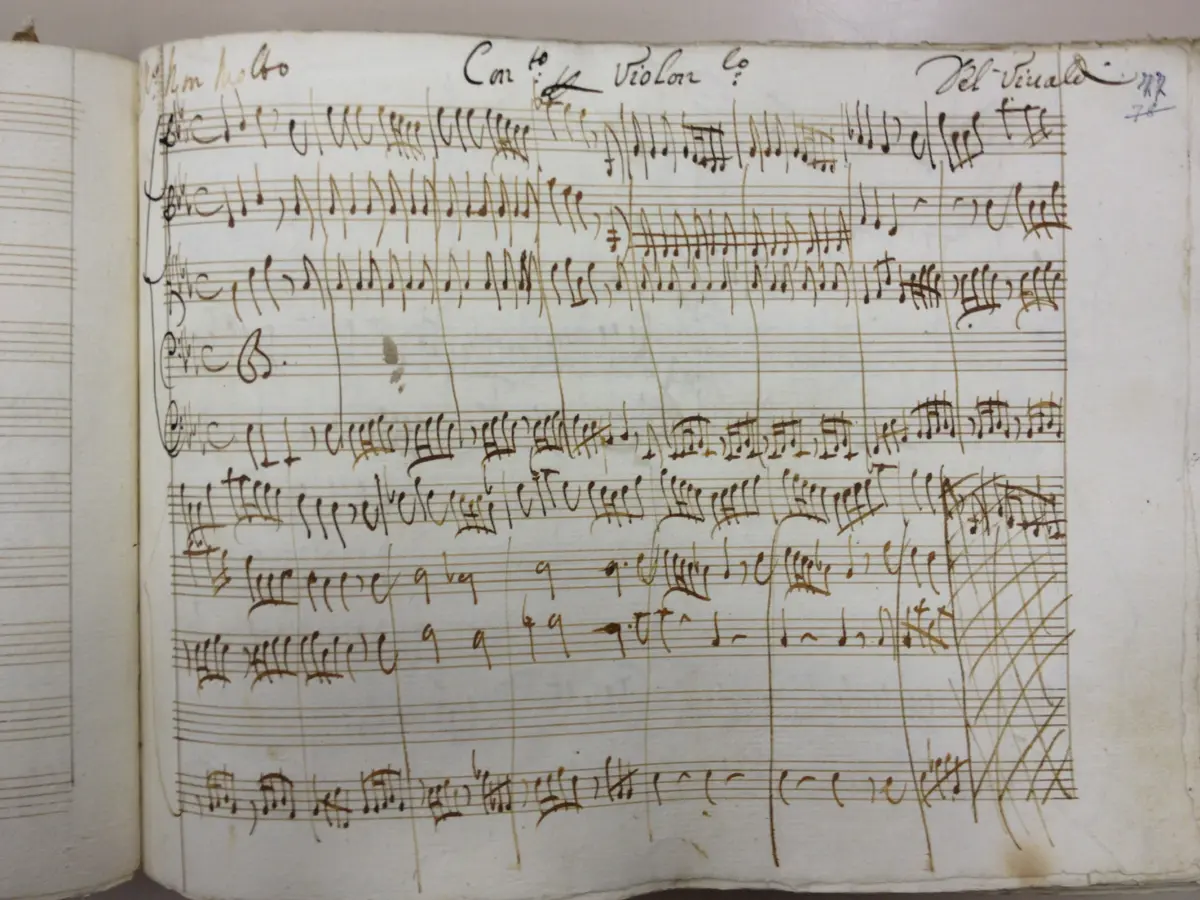 All.º Non Molto Con.to p Violon.lo Del Viuald
77
78
B.